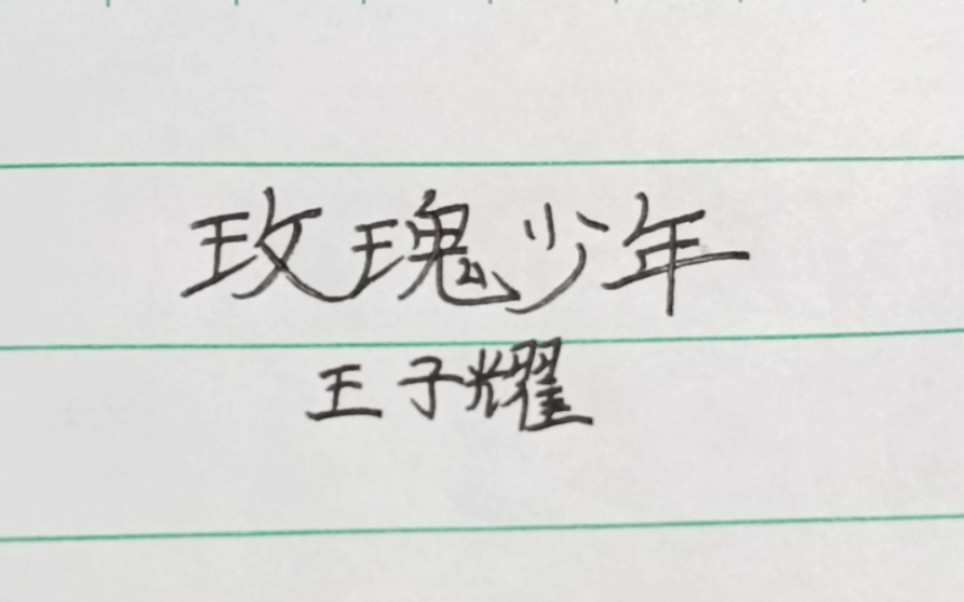 玫瑰少年
王子耀